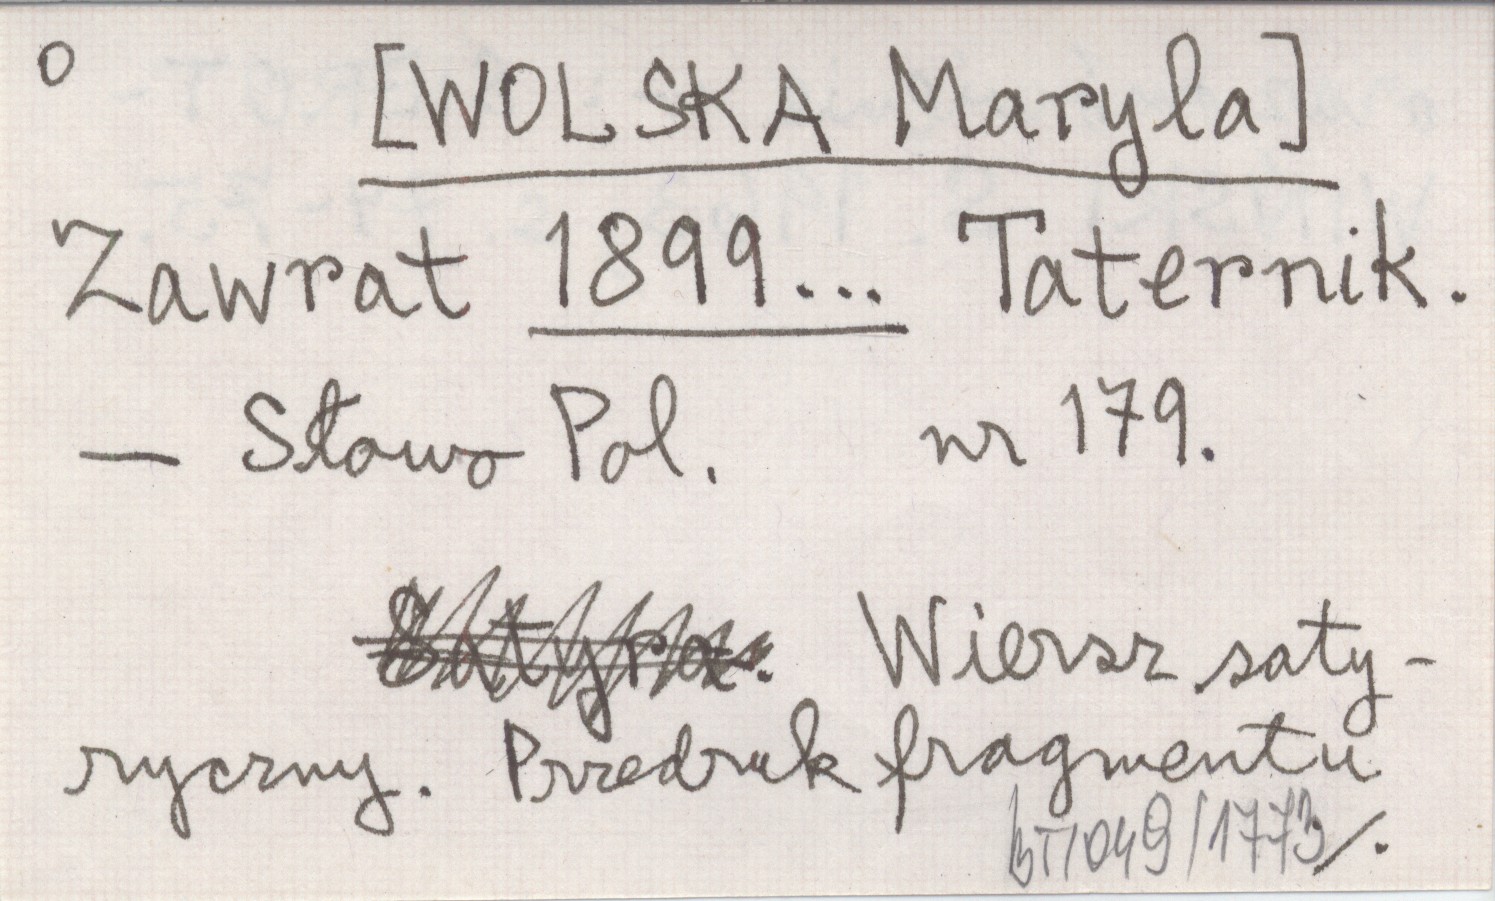 o [WOLSKA Maryla]
Zawrat 1899... Taternik.
— Słowo Pol. nr 179.
Satyra. Wiersz saty-
ryczny. Przedruk fragmentu
BT/049/1773 /.